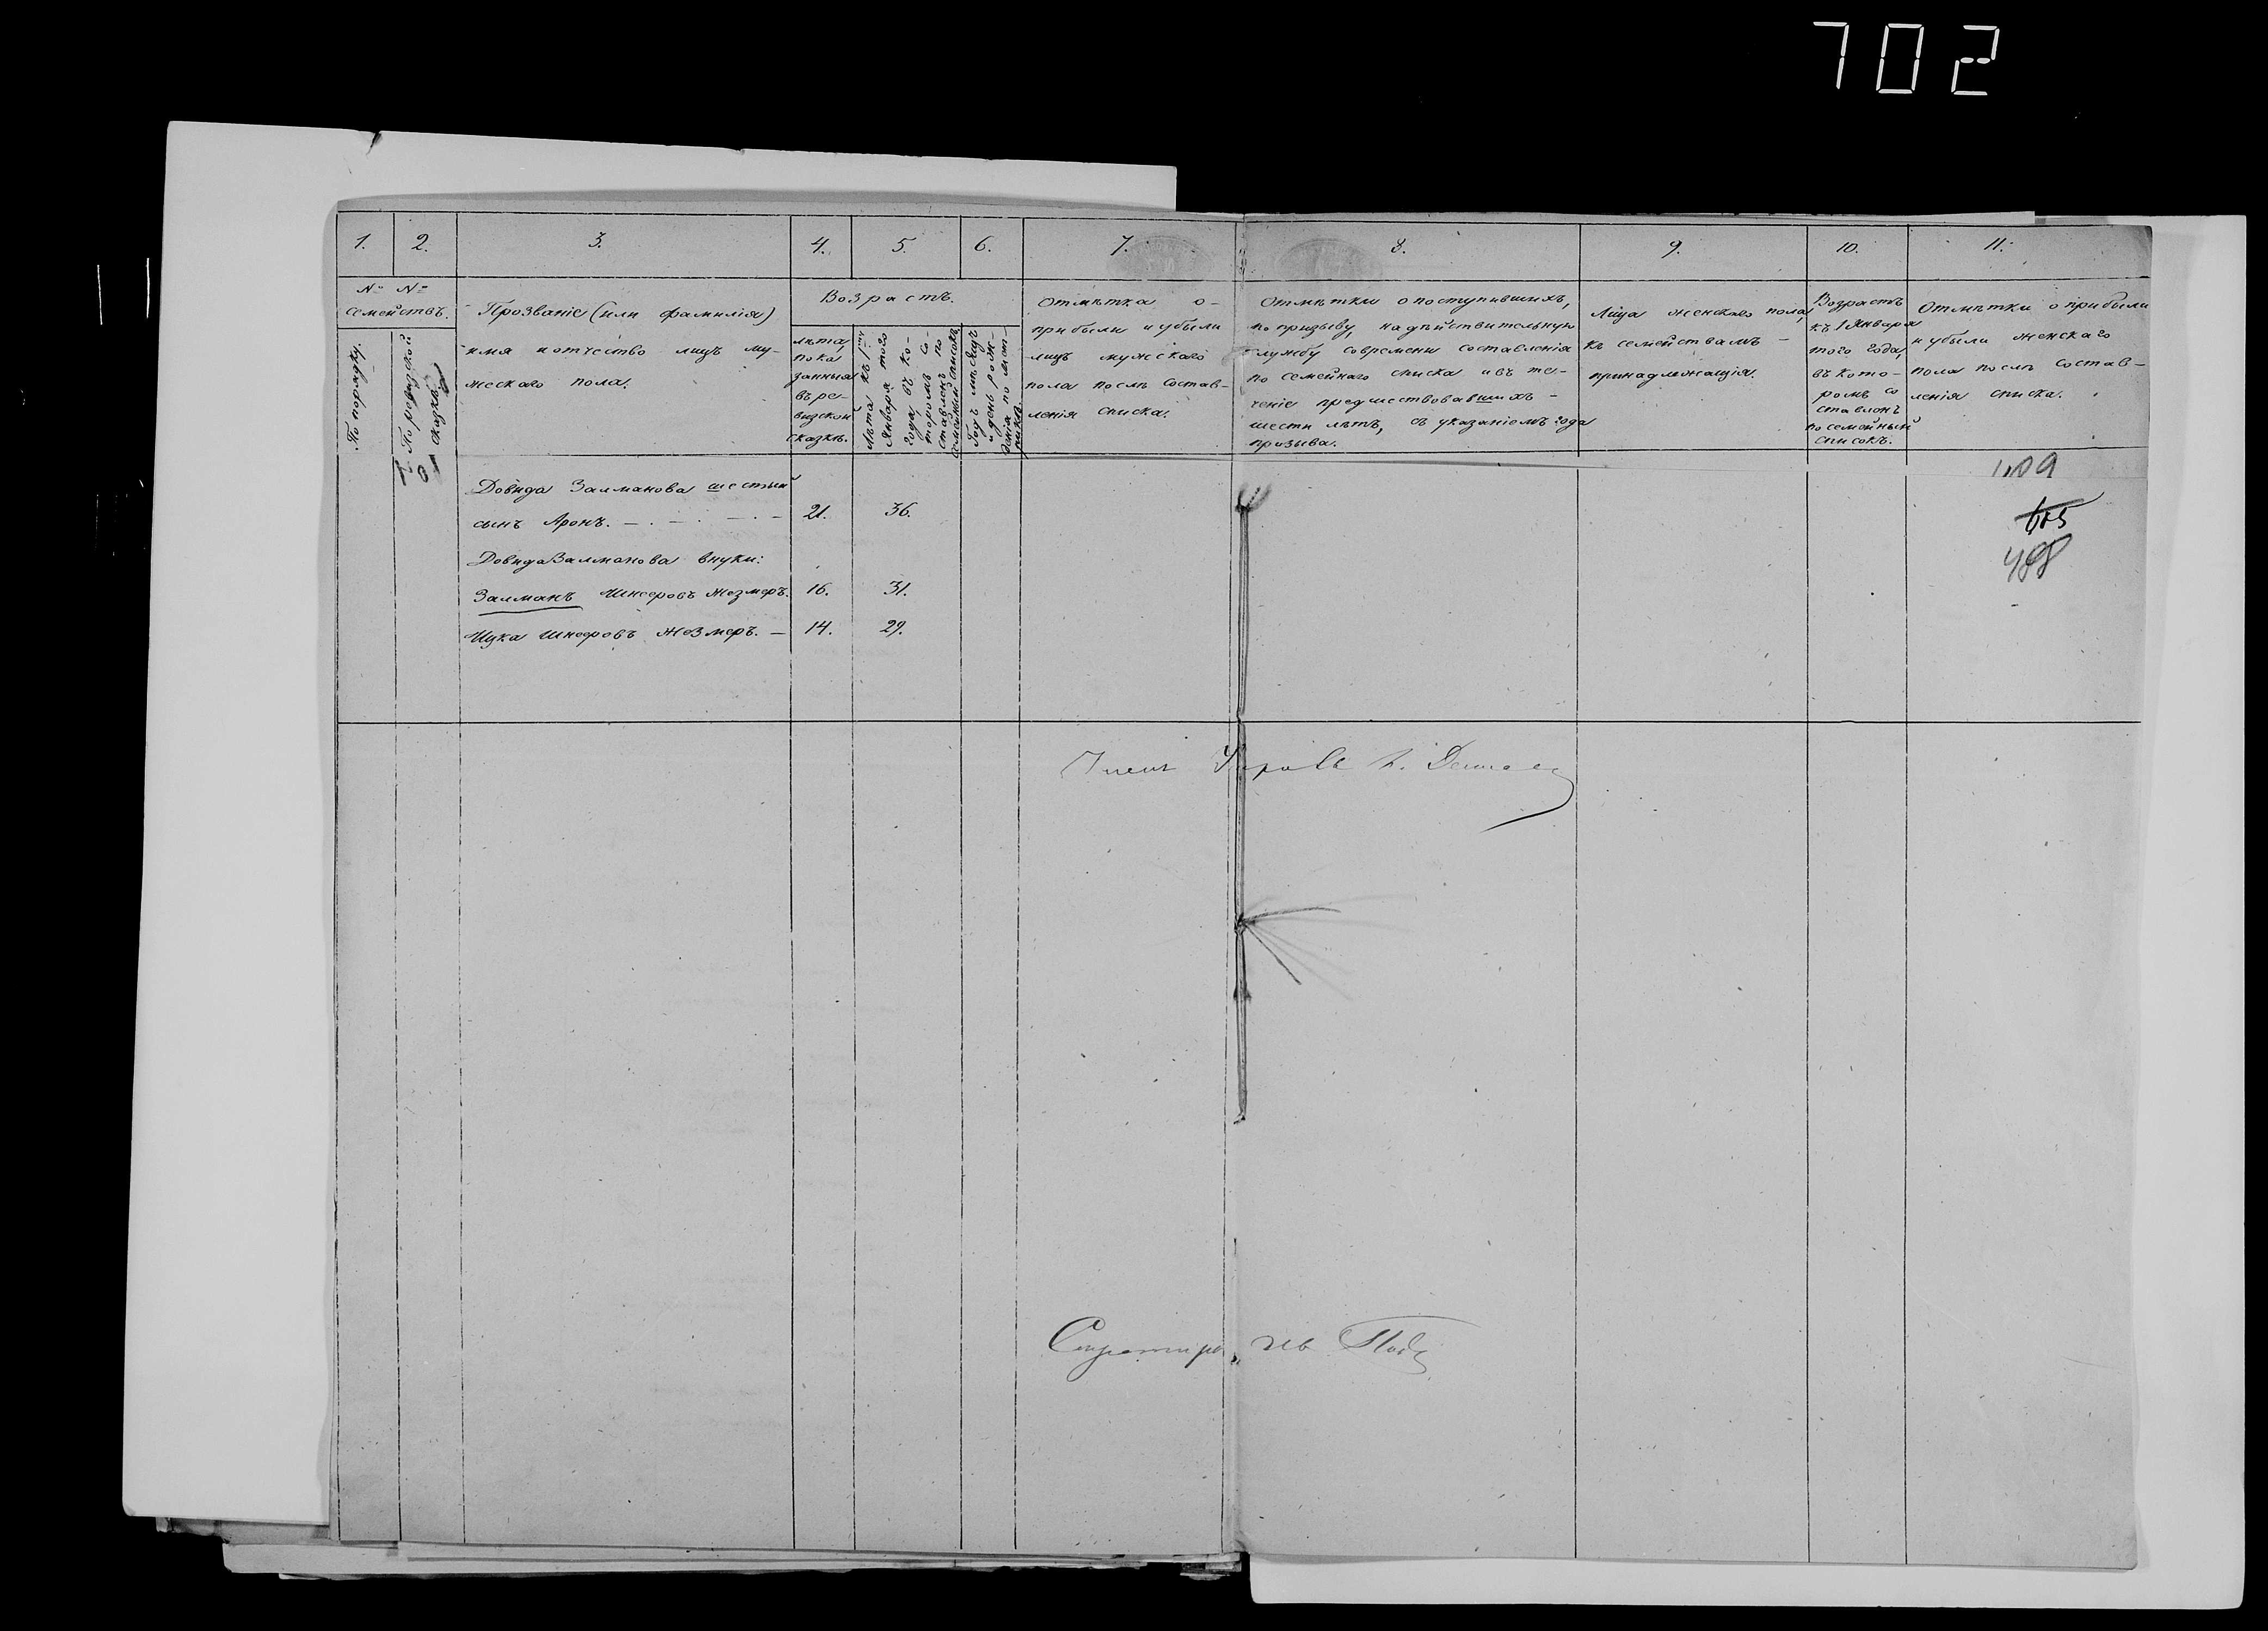 702
1. 2. 3. 4. 5. 6. 7. 8. 9. 10. 11.
№ №
семействъ.
По порядку.
По ревизской
сказкѣ.
Прозваніе (или фамилія)
имя и отчество лицъ му-
жескаго пола.
Возрастъ.
лѣта,
пока
занныя
въ ре-
визской
сказкѣ.
Лѣта къ 1му
Января того
года, въ ко-
торомъ со-
ставленъ по
семейный списокъ.
Годъ мѣсяцъ
и день рож-
денія по мет-
рикѣ.
Отмѣтка о-
прибыли и убыли
лицъ мужескаго
пола послѣ состав-
ленія списка.
Отмѣтки о поступившихъ,
по призыву, на дѣйствительную
службу со времени составленія
по семейнаго списка и въ те-
ченіе предшествовавшихъ -
шести лѣтъ, съ указаніемъ года
призыва.
Лица женскаго пола,
къ семействамъ -
принадлежащія.
Возрастъ
къ 1 Января
того года,
въ кото-
ромъ со
ставленъ
по семейный
списокъ.
Отметки о прибыли
и убыли женскаго
пола послѣ состав-
ленія списка.
Довида Залманова шестый
сынъ Аронъ. 21. 36.
Довида Залманова внуки:
Залманъ Шнееровъ Жезмеръ. 16. 31.
Ицка Шнееровъ Жезмеръ. — 14. 29.
488
Членъ Управы
Секретарь